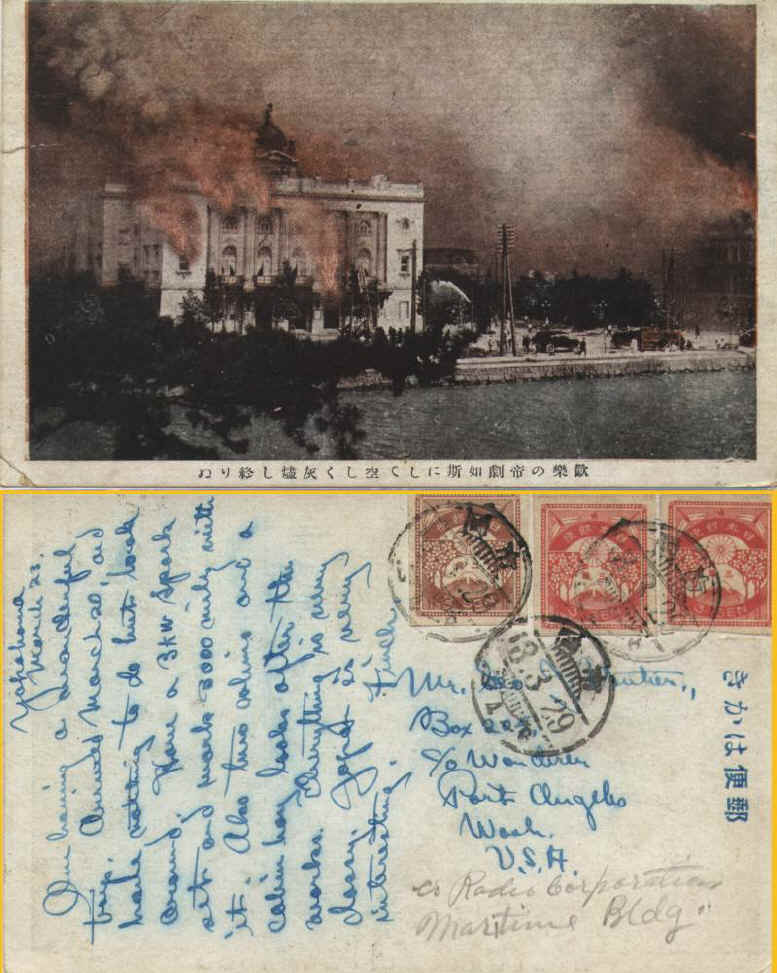 歡樂の帝劇如斯にして空しく灰燼し終りぬ
郵便はかき
Yokohama
March 23.
Am having a wonderful
trip. Arrived March 20, and
have nothing to do but look
around. Have a 3 KW Spark
set and work 3000 with
it. Also two and a
cabin boy looks after the
works. Everything is very
classy. Japan is very
interesting.
Mr.
Box
c/o Wanderer
Port Angeles
Wash.
U.S.A.
co Radio Corporation
Maritime Bldg.